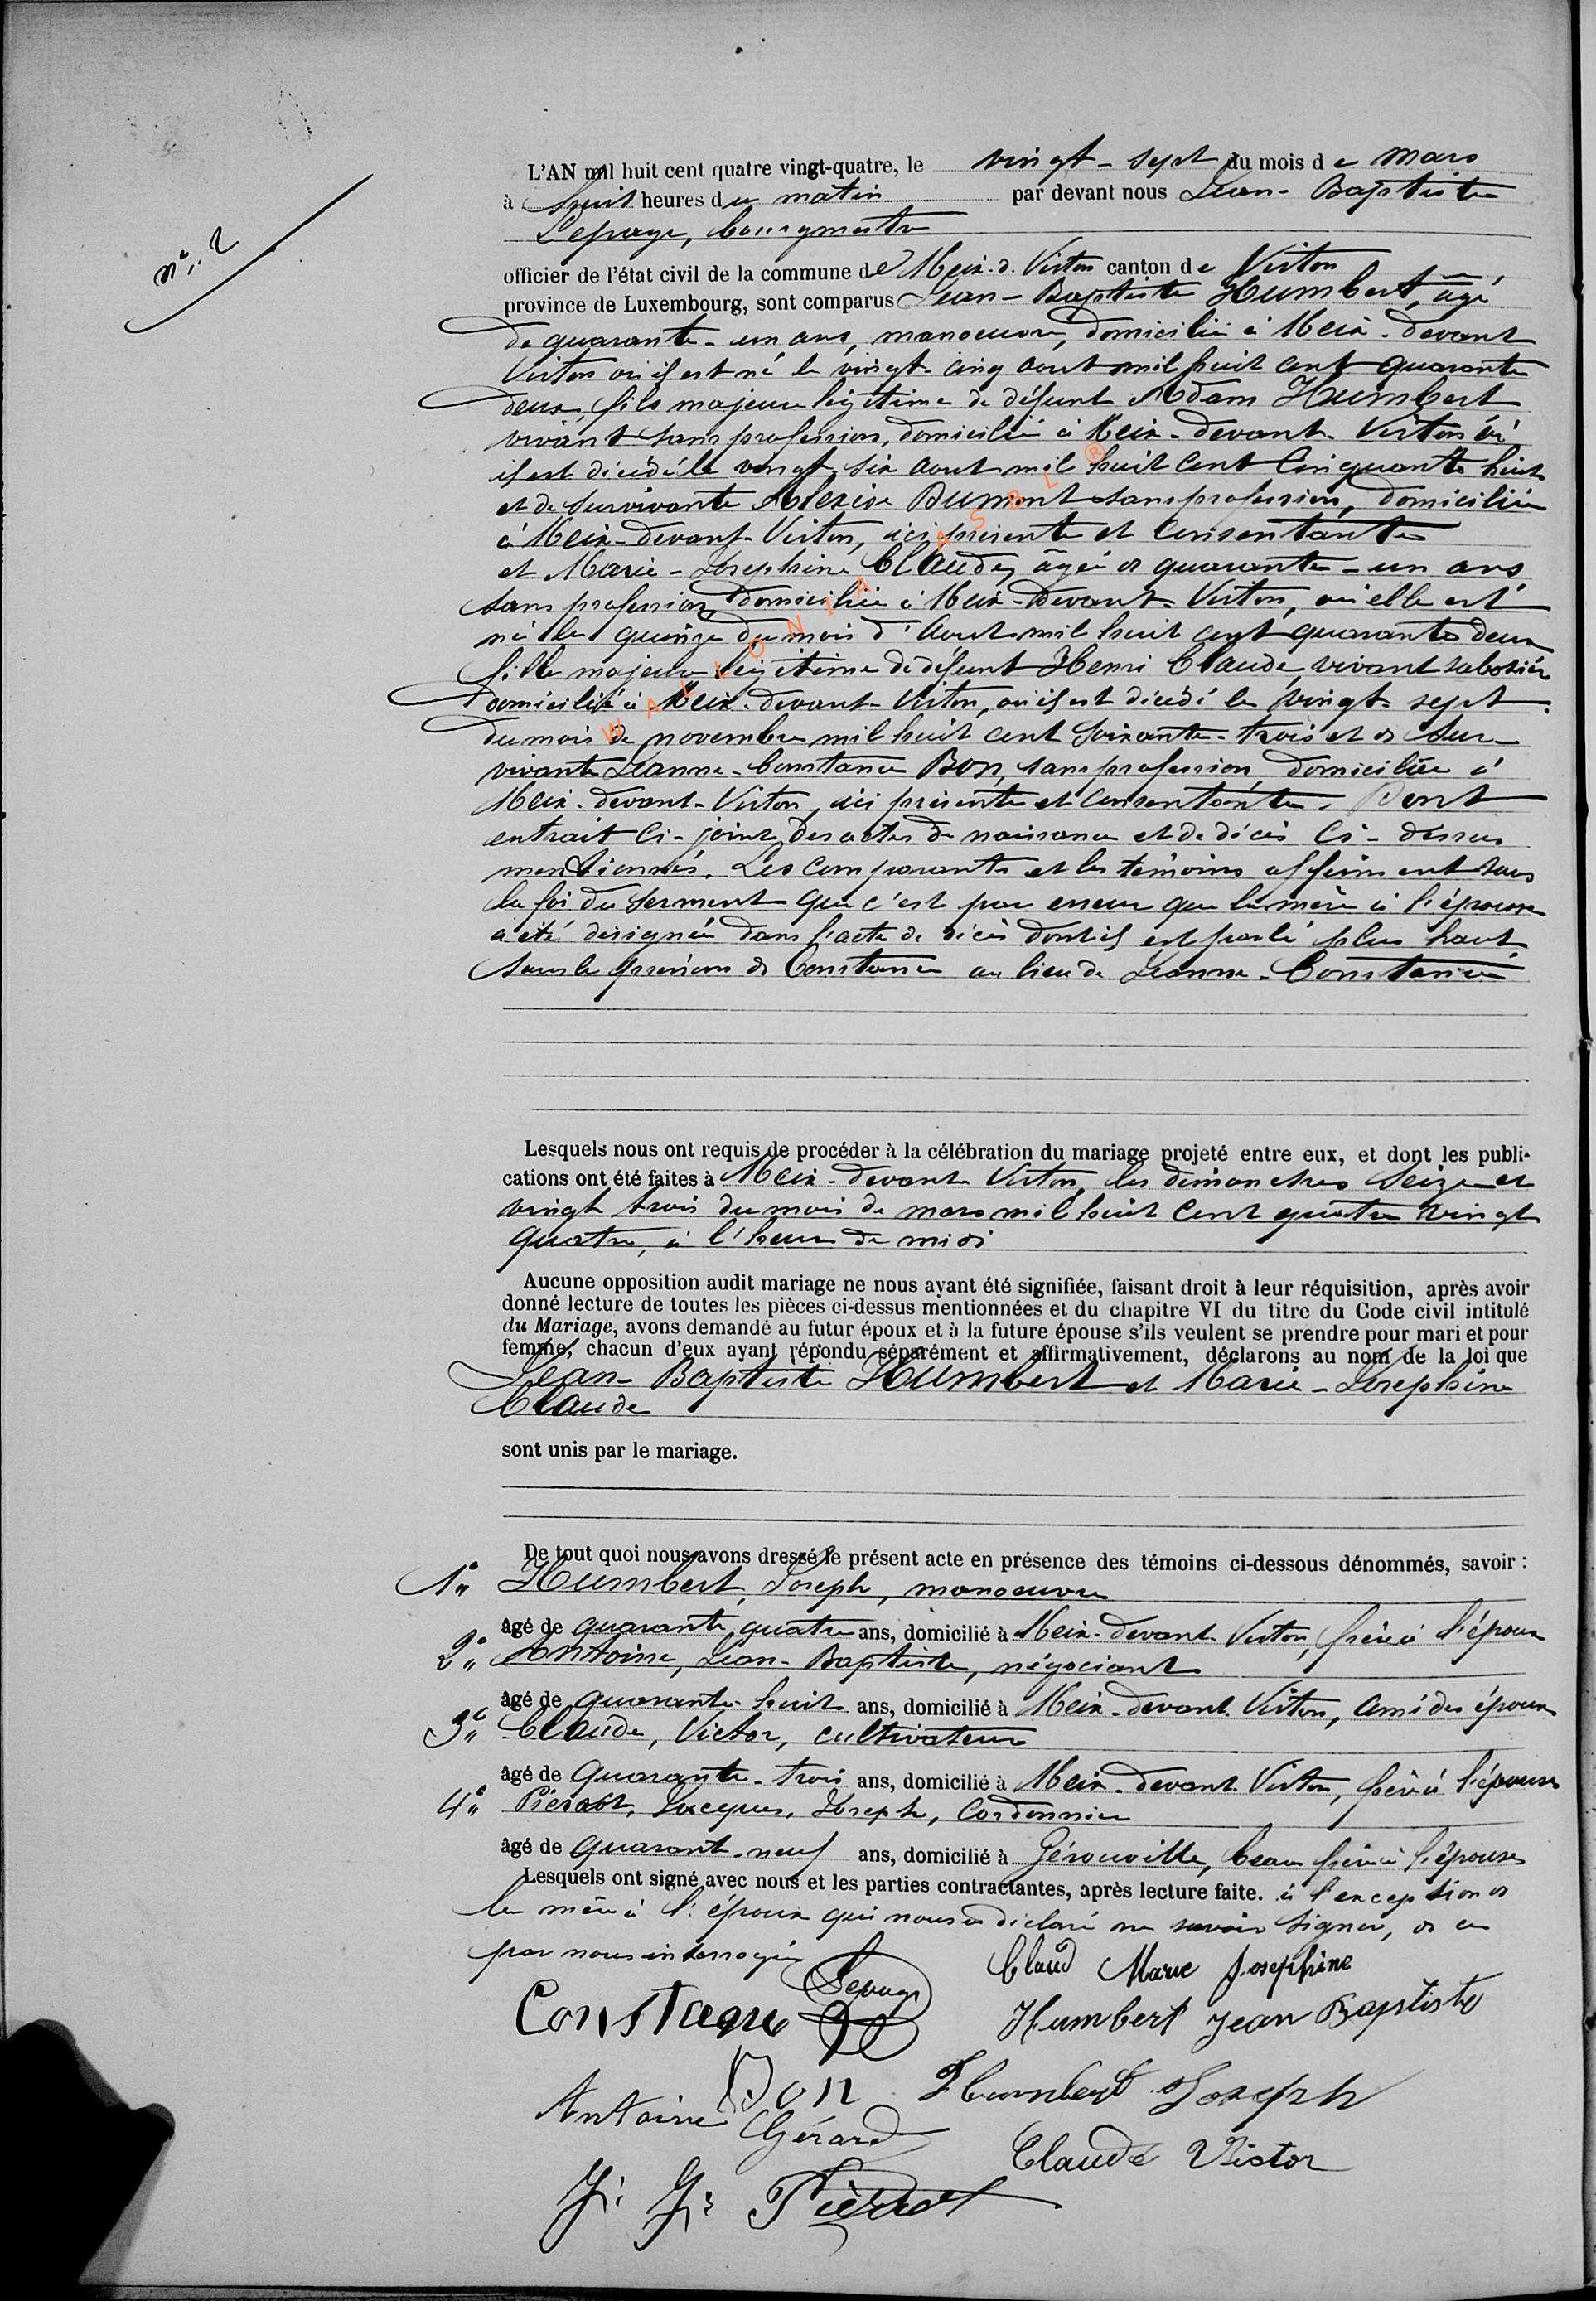 n° 2
L'AN mil huit cent quatre vingt-quatre, le vingt-sept du mois de mars
à huit heures du matin par devant nous Jean-Baptiste
Lepage, bourgmestre
officier de l'état civil de la commune de Meix-d.-Virton canton de Virton
province de Luxembourg, sont comparus Jean-Baptiste Humbert, âgé
de quarante-un ans, manoeuvre, domicilié à Meix-devant
Virton où il est né le vingt-cinq aout mil huit cent quarante
deux, fils majeur légitime de défunt Adam Humbert
vivant sans profession, domicilié à Meix-devant-Virton où
il est décédé le vingt six aout mil huit cent cinquante huit
et de survivante Alexise Dumont sans profession, domiciliée
à Meix-devant-Virton, ici présente et consentante
et Marie-Josephine Claude, âgée de quarante-un ans
sans profession, domiciliée à Meix-devant-Virton, où elle est
née le quinze du mois d'Aout mil huit cent quarante deux
fille majeure légitime de défunt Henri Claude, vivant sabotier
domicilié à Meix-devant-Virton, où il est décédé le vingt-sept
du mois de novembre mil huit cent soixante-trois et de sur-
vivante Jeanne-Constance Bon, sans profession, domiciliée à
Meix-devant-Virton, ici présente et consentante. Dont
extrait ci-joint des actes de naissance et de décès ci-dessus
mentionnés. Les comparants et les témoins affirment sous
la foi du serment que c'est par erreur que la mère à l'épouse
a été désignée dans l'acte de décès dont il est parlé plus haut
sous le prénom de Constance au lieu de Jeanne-Constance
Lesquels nous ont requis de procéder à la célébration du mariage projeté entre eux, et dont les publi-
cations ont été faites à Meix-devant-Virton, les dimanches seize et
vingt trois du mois de mars mil huit cent quatre vingt
quatre, à l'heure de midi
Aucune opposition audit mariage ne nous ayant été signifiée, faisant droit à leur réquisition, après avoir
donné lecture de toutes les pièces ci-dessus mentionnées et du chapitre VI du titre du Code civil intitulé
du Mariage, avons demandé au futur époux et à la future épouse s'ils veulent se prendre pour mari et pour
femme, chacun d'eux ayant répondu séparément et affirmativement, déclarons au nom de la loi que
Jean-Baptiste Humbert et Marie-Josephine
Claude
sont unis par le mariage.
De tout quoi nous avons dressé le présent acte en présence des témoins ci-dessous dénommés, savoir :
1° Humbert, Joseph, manoeuvre
âgé de quarante quatre ans, domicilié à Meix-devant-Virton, frère à l'époux
2° Antoine, Jean-Baptiste, négociant
âgé de quarante-huit ans, domicilié à Meix-devant-Virton, ami des époux
3° Claude, Victor, cultivateur
âgé de quarante-trois ans, domicilié à Meix-devant-Virton, frère à l'épouse
4° Piérrot, Jacques, Joseph, Cordonnier
âgé de quarante-neuf ans, domicilié à Gérouville, beau frère à l'épouse
Lesquels ont signé avec nous et les parties contractantes, après lecture faite. à l'exception de
la mère à l'époux qui nous a déclaré ne savoir signer, de ce
par nous interrogée
Lepage
Claud Marie Josephine
Constance
Humbert Jean Baptiste
Bon
Humbert Joseph
Antoine Gérard
Claude Victor
J. J. Pierrot
WALLONIA ASBL ®